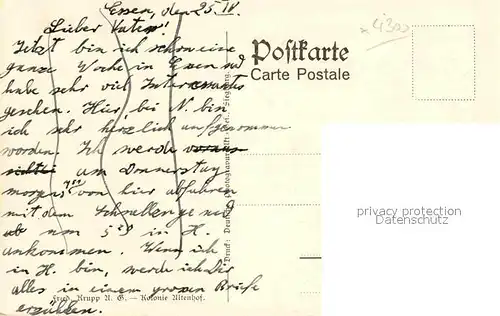 Essen, den 25. IV.
Lieber Vater!
Jetzt bin ich schon eine
ganze Woche in Essen und
habe sehr viel Interessantes
gesehen. Hier, bei N. bin
ich sehr herzlich aufgenommen
worden. Ich werde voraus-
sichtl. am Donnerstag
morgens von hier abfahren
mit dem Schnellzuge und
ab um in H.
ankommen. Wenn ich
in H. bin, werde ich Dir
alles in einem grossen Briefe
erzählen.
Fried. Krupp A. G. — Kolonie Altenhof.
Postkarte
Carte Postale
privacy protection
Datenschutz